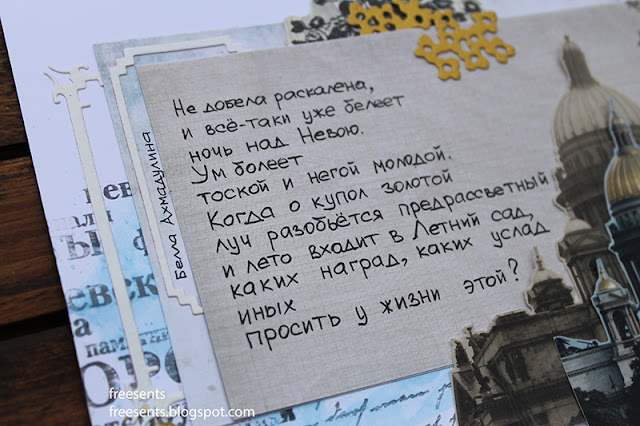 Не добела раскалена,
и всё-таки уже белеет
ночь над Невою.
Ум болеет
тоской и негой молодой.
Когда о купол золотой
луч разобьётся предрассветный
и лето входит в Летний сад,
каких наград, каких услад
иных
просить у жизни этой?
Белла Ахмадулина
freesents
freesents.blogspot.com